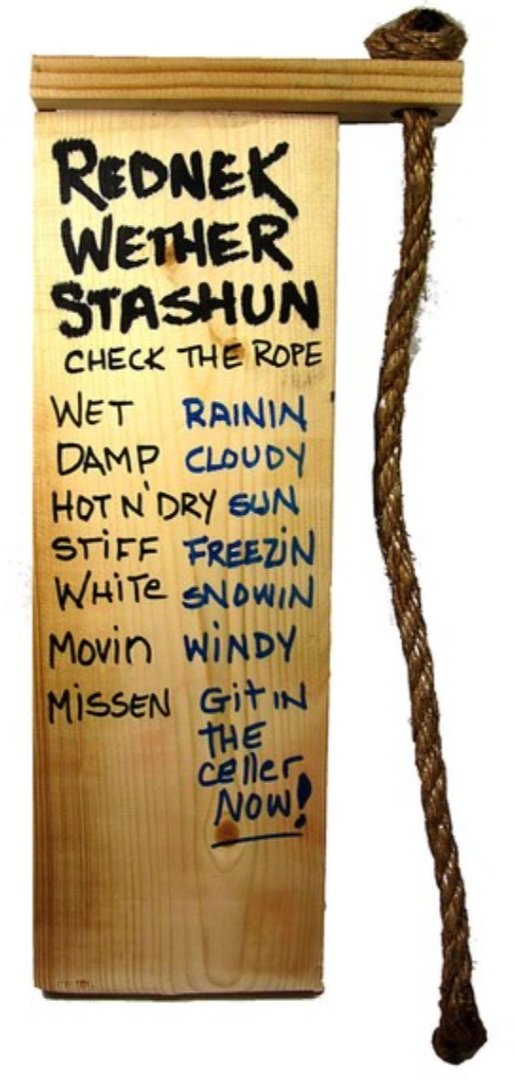 REDNEK
WETHER
STASHUN
CHECK THE ROPE
WET RAININ
DAMP CLOUDY
HOT N' DRY SUN
STIFF FREEZIN
WHITE SNOWIN
MOVIN WINDY
MISSEN GIT IN
THE
CELLER
NOW!